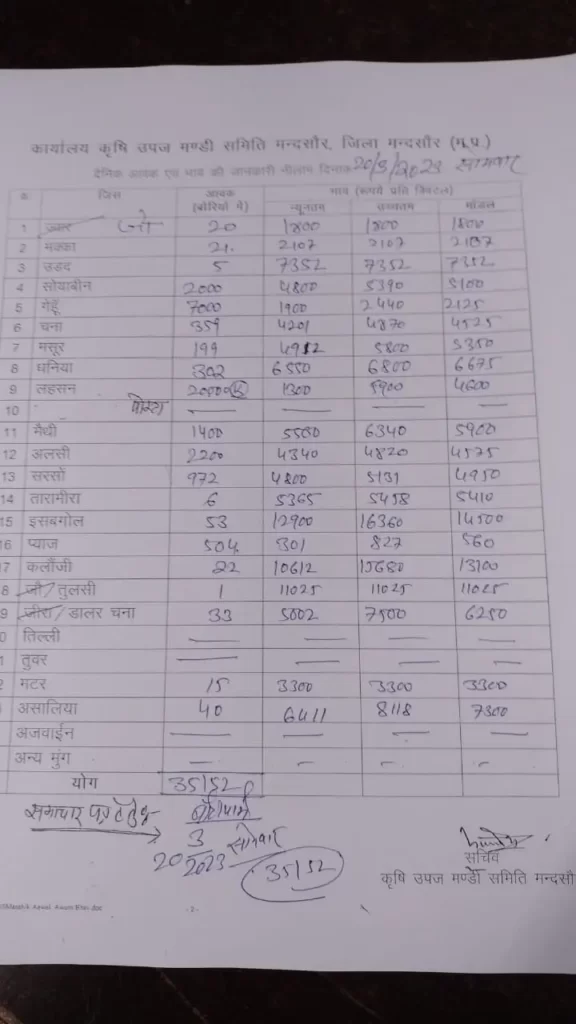 कार्यालय कृषि उपज मण्डी समिति मन्दसौर, जिला मन्दसौर (म.प्र.)
दैनिक आवक एवं भाव की जानकारी नीलाम दिनांक 20/3/2023 सोमवार
क्र. जिंस आवक (बोरियों में) भाव (रूपये प्रति क्विंटल)
न्यूनतम उच्चतम मॉडल
1 ज्वार जौ 20 1800 1800 1800
2 मक्का 21 2107 2107 2107
3 उडद 5 7352 7352 7352
4 सोयाबीन 2000 4800 5390 5100
5 गेहूँ 7000 1900 2440 2125
6 चना 359 4201 4870 4525
7 मसूर 199 4952 5800 5350
8 धनिया 302 6550 6800 6675
9 लहसन 20000 1300 5900 4600
10 पोस्ता — — — —
11 मैथी 1400 5500 6340 5900
12 अलसी 2200 4340 4820 4575
13 सरसों 972 4800 5131 4950
14 तारामीरा 6 5365 5458 5410
15 इसबगोल 53 12900 16360 14500
16 प्याज 504 301 827 560
17 कलौंजी 22 10612 15680 13100
8 जौ/ तुलसी 1 11025 11025 11025
9 जीरा/ डालर चना 33 5002 7500 6250
0 तिल्ली — — — —
1 तुवर — — — —
2 मटर 15 3300 3300 3300
असालिया 40 6411 8118 7300
अजवाईन — — — —
अन्य मुंग — — — —
योग 35152
समाचार पत्र हेतु
20 3 2023 सोमवार
35152
सचिव
कृषि उपज मण्डी समिति मन्दसौ
- 2 -